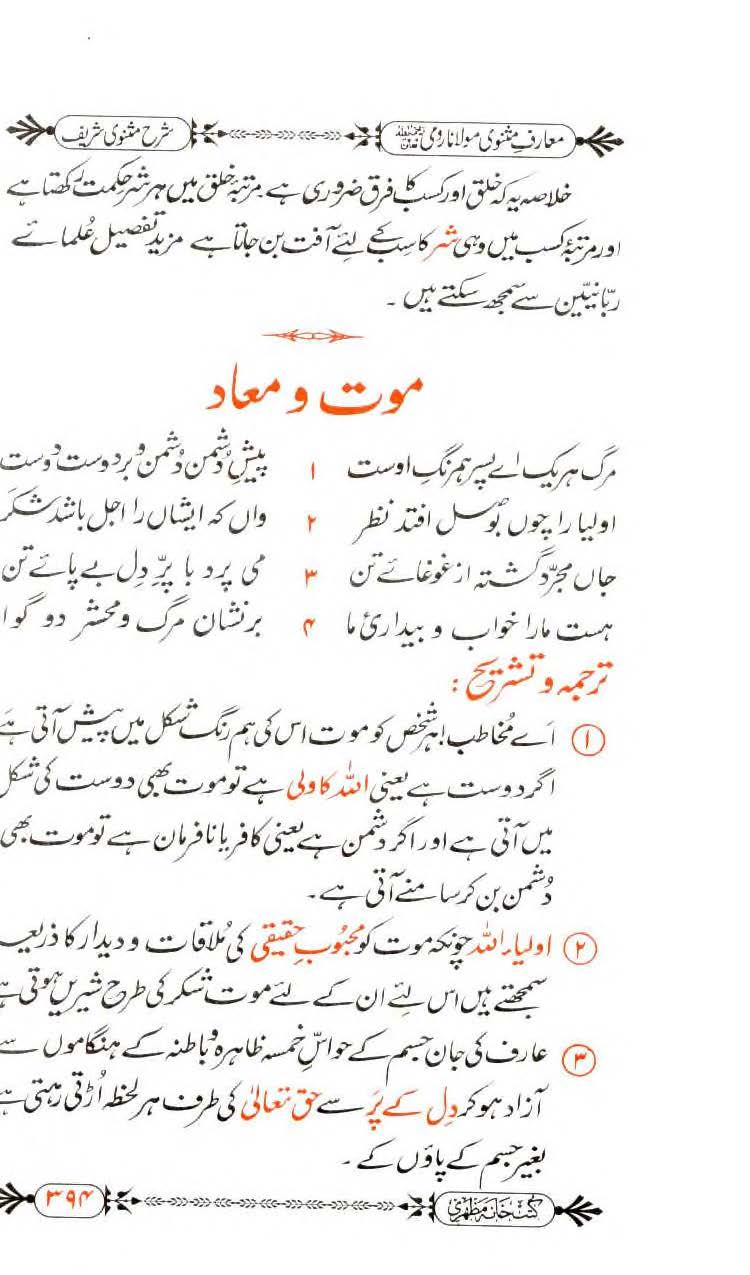 معارفِ مثنوی مولانا رومی
شرح مثنوی شریف
خلاصہ یہ کہ خلق اور کسب کا فرق ضروری ہے۔ مرتبۂ خلق میں ہر شر حکمت رکھتا ہے
اور مرتبۂ کسب میں وہی شر کاسب کے لئے آفت بن جاتا ہے مزید تفصیل عُلمائے
ربّانیّین سے سمجھ سکتے ہیں ۔
موت و معاد
مرگ ہر یک اے پسر ہم رنگ اوست ۱ پیشِ دُشمن دُشمن و بر دوست دوست
اولیا را چوں بوصل افتد نظر ۲ واں کہ ایشاں را اجل باشد شکر
جاں مجرّد گشتہ از غوغائے تن ۳ می پرد با پرِّ دِل بے پائے تن
ہست مارا خواب و بیداریٔ ما ۴ بر نشان مرگ و محشر دو گوا
ترجمہ و تشریح :
۱ اَے مُخاطب! ہر شخص کو موت اس کی ہم رنگ شکل میں پیش آتی ہے
اگر دوست ہے یعنی اللہ کا ولی ہے تو موت بھی دوست کی شکل
میں آتی ہے اور اگر دشمن ہے یعنی کافر یا نافرمان ہے تو موت بھی
دُشمن بن کر سامنے آتی ہے۔
۲ اولیاء اللہ چونکہ موت کو محبُوبِ حقیقی کی مُلاقات و دیدار کا ذریعہ
سمجھتے ہیں اس لئے ان کے لئے موت شکر کی طرح شیریں ہوتی ہے
۳ عارف کی جان جسم کے حواسِّ خمسہ ظاہرہ و باطنہ کے ہنگاموں سے
آزاد ہو کر دِل کے پَر سے حق تعالیٰ کی طرف ہر لحظہ اُڑتی رہتی ہے
بغیر جسم کے پاؤں کے ۔
کتب خانہ مظہری
۳۹۴